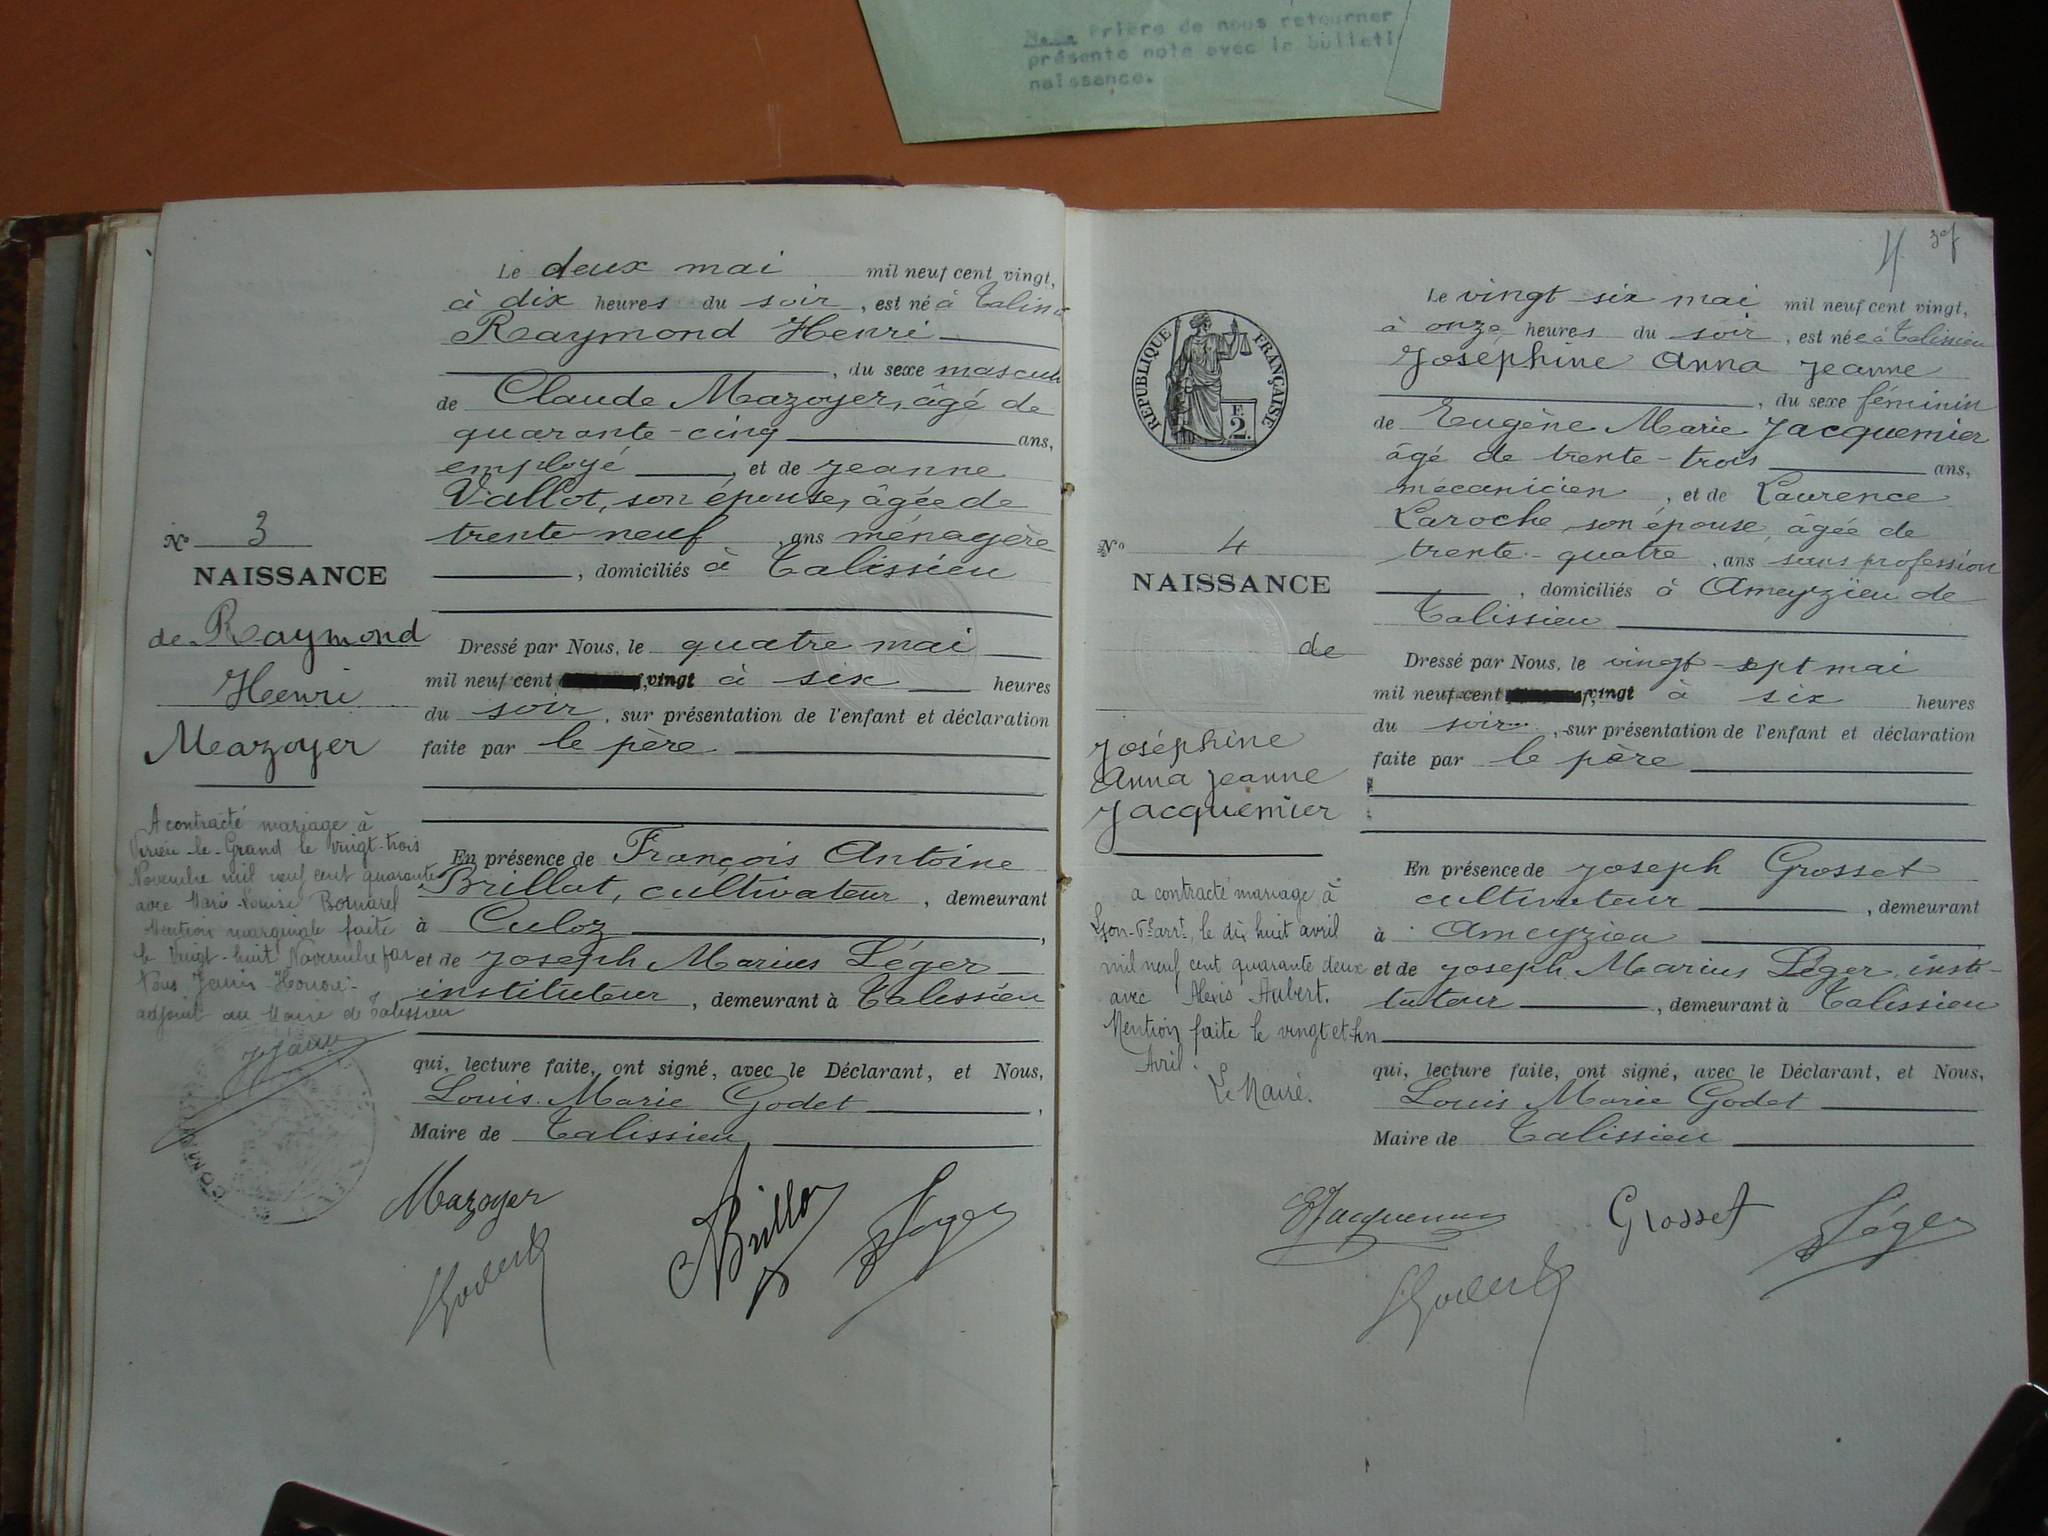 Prière de nous retourner
présente note avec le bulleti
naissance.
Le deux mai mil neuf cent vingt,
à dix heures du soir, est né à Talissi
Raymond Henri
, du sexe mascul
de Claude Mazoyer, âgé de
quarante-cinq ans,
employé, et de Jeanne
Vallot, son épouse, âgée de
trente-neuf, ans ménagère
, domiciliés à Talissieu
Dressé par Nous, le quatre mai
mil neuf cent vingt à six heures
du soir, sur présentation de l'enfant et déclaration
faite par le père
En présence de François Antoine
Brillat, cultivateur, demeurant
à Culoz,
et de Joseph Marius Léger
instituteur, demeurant à Talissieu
qui, lecture faite, ont signé, avec le Déclarant, et Nous,
Louis Marie Godet,
Maire de Talissieu
Mazoyer Brillat Léger
Godet
No 3
NAISSANCE
de Raymond
Henri
Mazoyer
A contracté mariage à
Virieu-le-Grand le vingt-trois
Novembre mil neuf cent quarante
avec Marie-Louise Bornarel
Mention marginale faite
le Vingt-huit Novembre par
Nous Janin Honoré
adjoint au Maire de Talissieu
COMMU
4 3ef
RÉPUBLIQUE FRANÇAISE
F.
2.
Le vingt six mai mil neuf cent vingt,
à onze heures du soir, est née à Talissieu
Joséphine Anna Jeanne
, du sexe féminin
de Eugène Marie Jacquemier
âgé de trente-trois ans,
mécanicien, et de Laurence
Laroche, son épouse, âgée de
trente-quatre, ans sans profession
, domiciliés à Ameyzieu de
Talissieu
Dressé par Nous, le vingt-sept mai
mil neuf cent vingt à six heures
du soir, sur présentation de l'enfant et déclaration
faite par le père
En présence de Joseph Grosset
cultivateur, demeurant
à Ameyzieu
et de Joseph Marius Léger, insti-
tuteur, demeurant à Talissieu
qui, lecture faite, ont signé, avec le Déclarant, et Nous,
Louis Marie Godet
Maire de Talissieu
EJacquemier Grosset Léger
Godet
No 4
NAISSANCE
de
Joséphine
Anna Jeanne
Jacquemier
a contracté mariage à
Lyon-6e arrt, le dix huit avril
mil neuf cent quarante deux
avec Alexis Aubert.
Mention faite le vingt et un
Avril.
Le Maire.